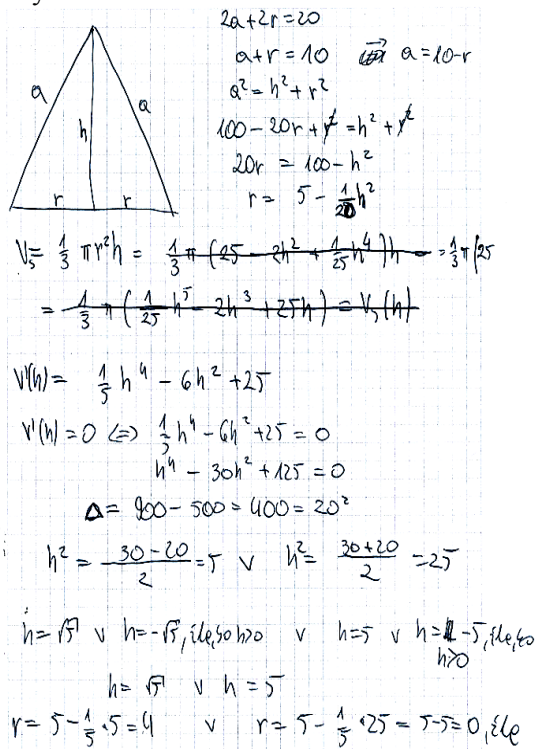 2a+2r=20
a+r=10 a=10-r
a²=h²+r²
100-20r+r²=h²+r²
20r=100-h²
r= 5-1/20h²
a a h r r
Vs=1/3πr²h= 1/3π(25-2h²+1/25h⁴)h = =1/3π(25
= 1/3π(1/25h⁵-2h³+25h)=Vs(h)
V'(h)= 1/5h⁴-6h²+25
V'(h)=0 ⇔ 1/5h⁴-6h²+25=0
h⁴-30h²+125=0
Δ= 900-500=400=20²
h²= (30-20)/2=5 v h²= (30+20)/2=25
h=√5 v h=-√5, źle, bo h>0 v h=5 v h=-5, źle, bo
h>0
h=√5 v h=5
r=5-1/5·5=4 v r=5-1/5·25=5-5=0, źle